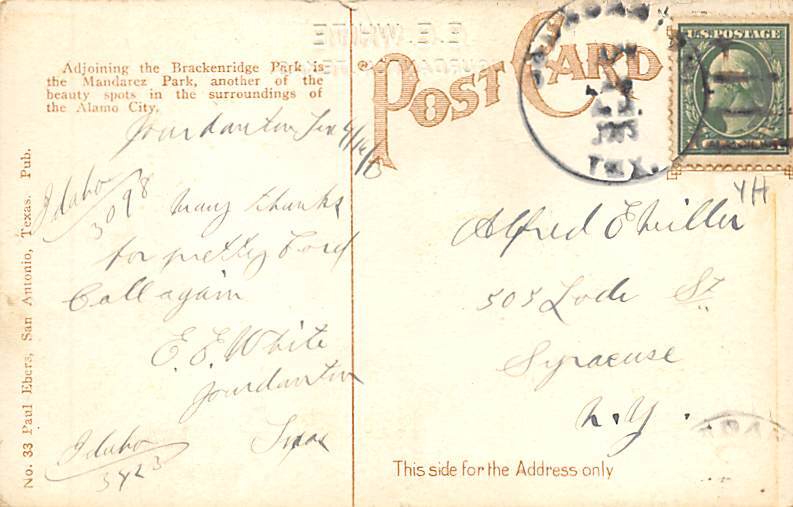 Adjoining the Brackenridge Park is
the Mandarez Park, another of the
beauty spots in the surroundings of
the Alamo City.
Jourdanton Tex
Idaho
3098
Many thanks
for pretty Card
Call again
E. E. White
Jourdanton
Texas
Idaho
3423
No. 33 Paul Ebers, San Antonio, Texas. Pub.
E.E. WHITE
POST CARD
TEX.
U.S. POSTAGE
YH
Alfred E Miller
505 Lodi St
Syracuse
N.Y.
This side for the Address only